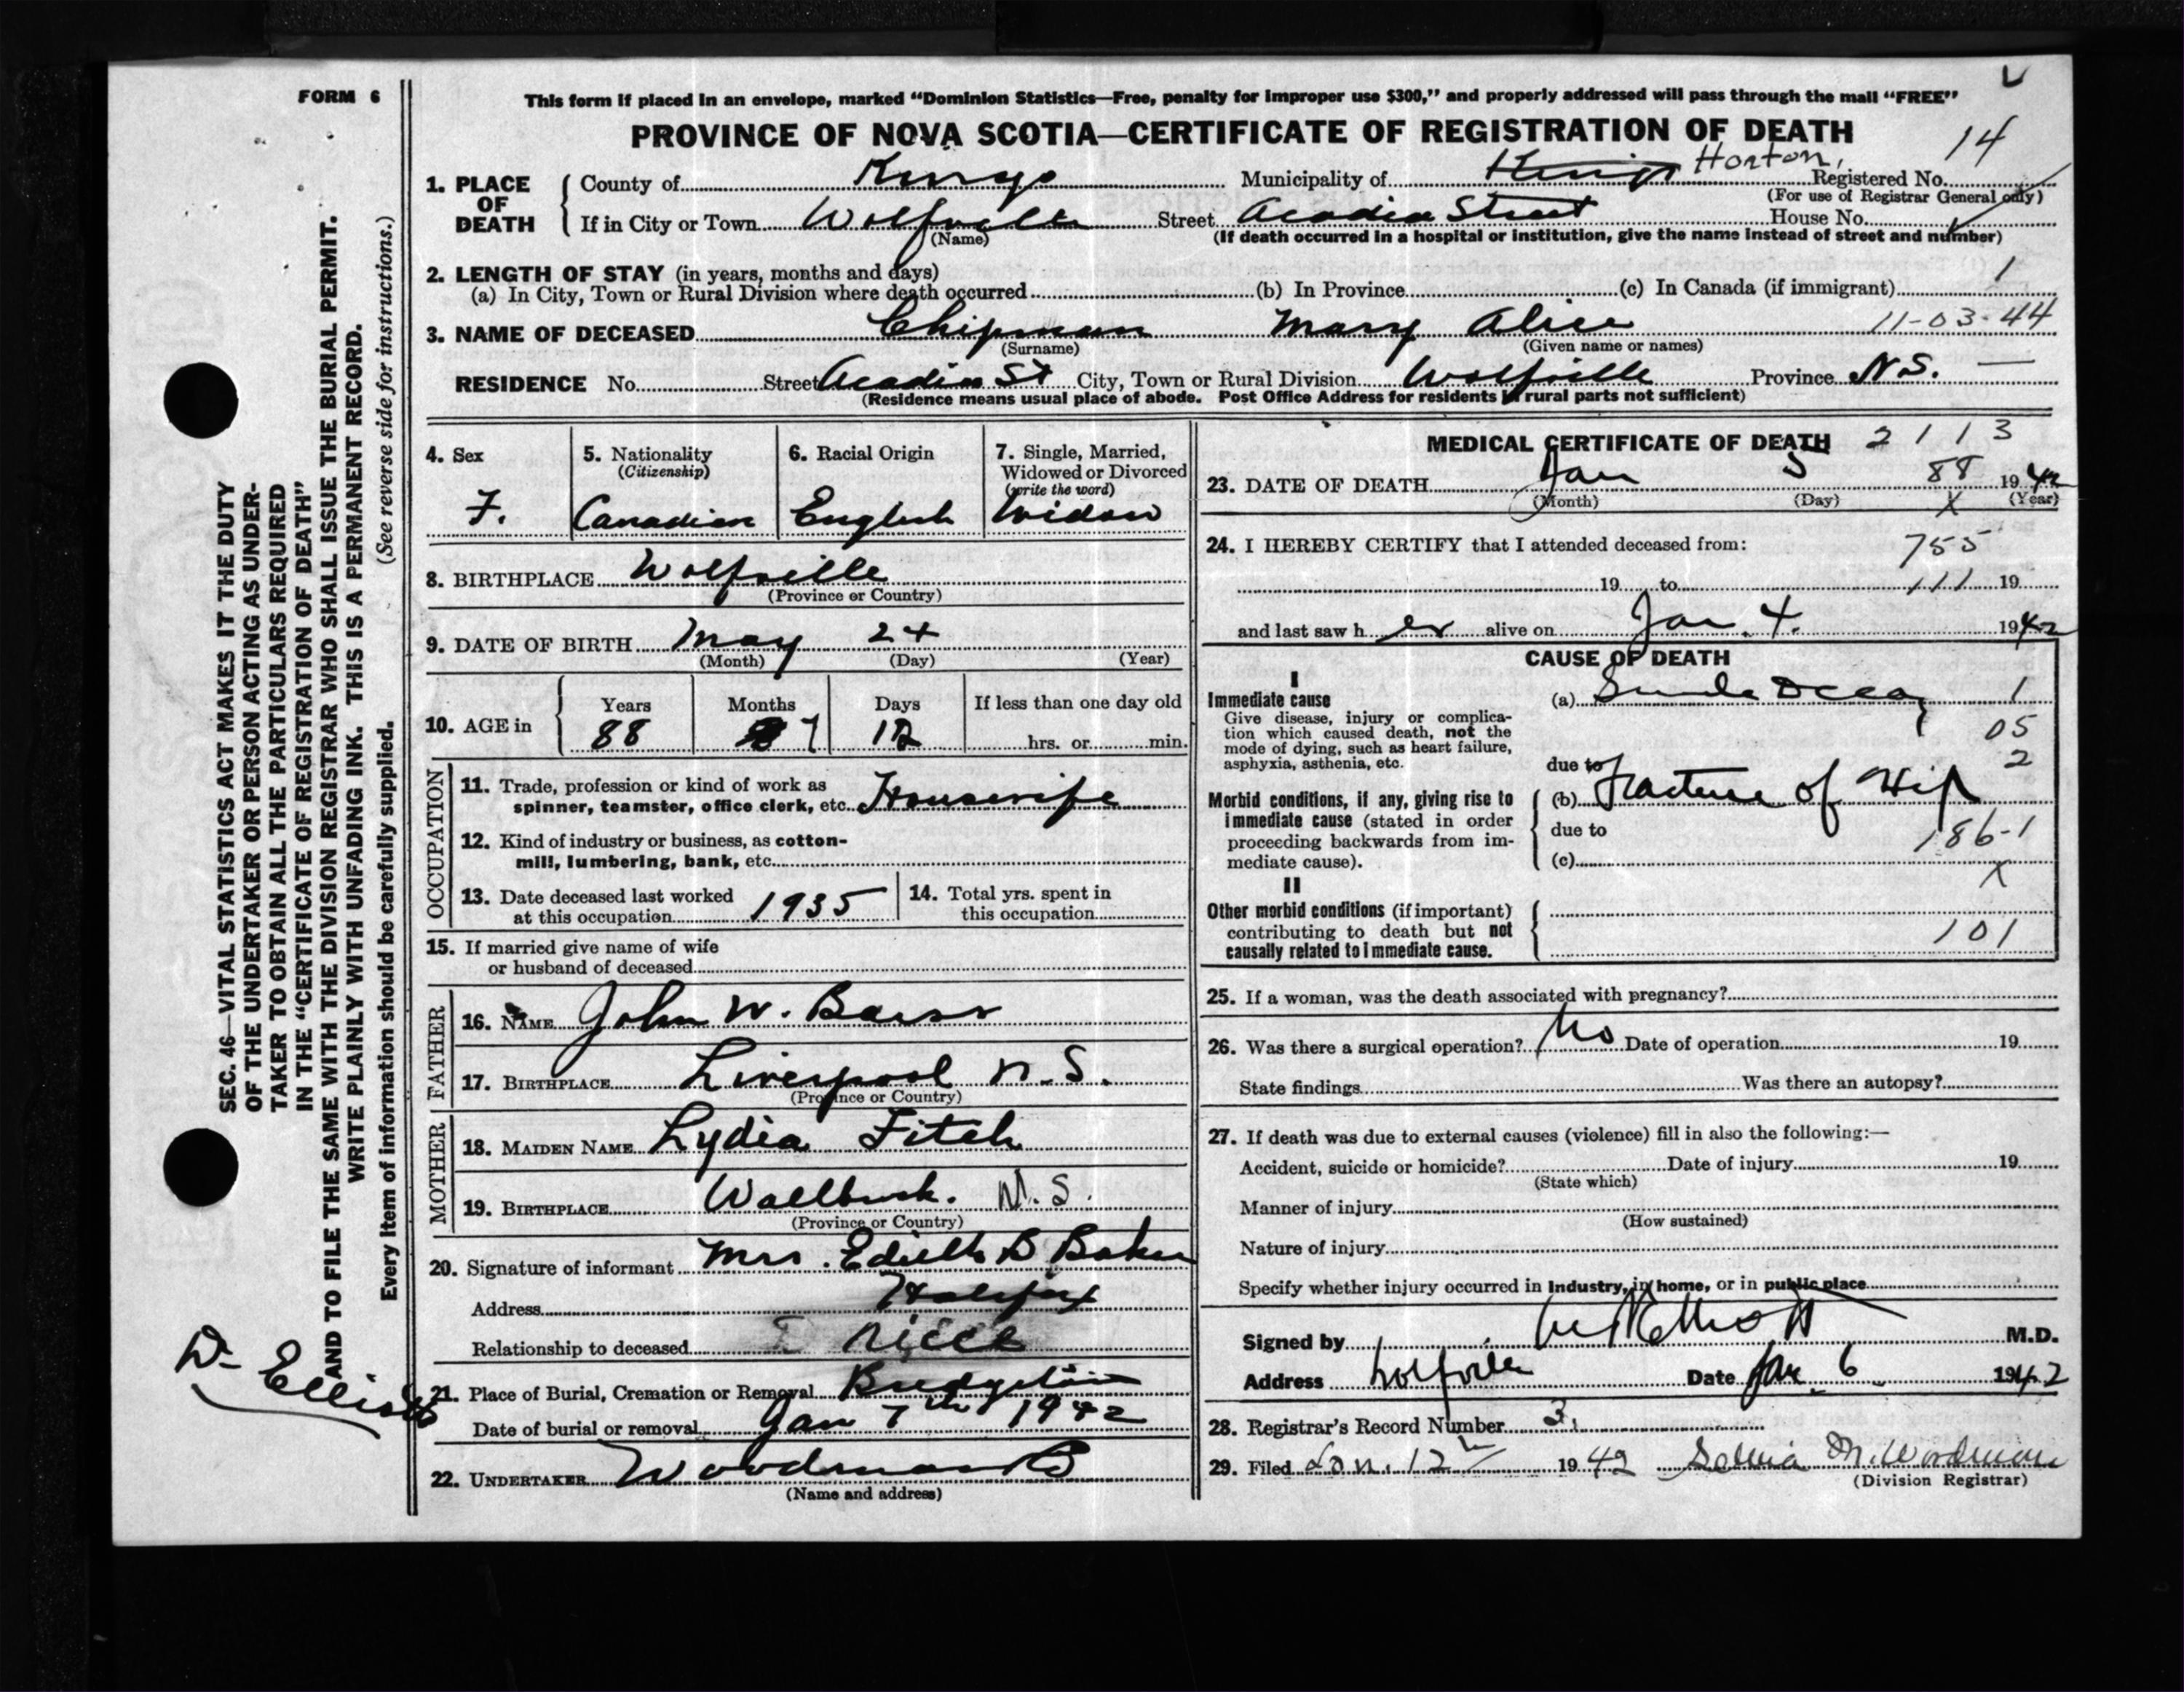 FORM 6
This form if placed in an envelope, marked "Dominion Statistics—Free, penalty for improper use $300," and properly addressed will pass through the mail "FREE"
PROVINCE OF NOVA SCOTIA—CERTIFICATE OF REGISTRATION OF DEATH
14
1. PLACE OF DEATH
County of Kings Municipality of Kings Horton, Registered No.
(For use of Registrar General only)
If in City or Town Wolfville Street Acadia Street House No.
(Name) (If death occurred in a hospital or institution, give the name instead of street and number)
2. LENGTH OF STAY (in years, months and days)
(a) In City, Town or Rural Division where death occurred (b) In Province (c) In Canada (if immigrant) 1
3. NAME OF DECEASED Chipman Mary Alice 11-03-44
(Surname) (Given name or names)
RESIDENCE No. Street Acadia St City, Town or Rural Division Wolfville Province N.S. —
(Residence means usual place of abode. Post Office Address for residents in rural parts not sufficient)
4. Sex
F.
5. Nationality
(Citizenship)
Canadian
6. Racial Origin
English
7. Single, Married,
Widowed or Divorced
(write the word)
Widow
8. BIRTHPLACE Wolfville
(Province or Country)
9. DATE OF BIRTH May 24
(Month) (Day) (Year)
10. AGE in
Years Months Days If less than one day old
88 7 12 hrs. or min.
OCCUPATION
11. Trade, profession or kind of work as
spinner, teamster, office clerk, etc. Housewife
12. Kind of industry or business, as cotton-
mill, lumbering, bank, etc.
13. Date deceased last worked
at this occupation 1935
14. Total yrs. spent in
this occupation
15. If married give name of wife
or husband of deceased
FATHER
16. NAME John W. Barss
17. BIRTHPLACE Liverpool N.S.
(Province or Country)
MOTHER
18. MAIDEN NAME Lydia Fitch
19. BIRTHPLACE Wallbrook. N.S.
(Province or Country)
20. Signature of informant Mrs. Edith B Baker
Address Halifax
Relationship to deceased niece
21. Place of Burial, Cremation or Removal Bridgetown
Date of burial or removal Jan 7th 1942
22. UNDERTAKER Woodman
(Name and address)
MEDICAL CERTIFICATE OF DEATH 2113
23. DATE OF DEATH Jan 5 88 1942
(Month) (Day) X (Year)
24. I HEREBY CERTIFY that I attended deceased from: 755
19 to 111 19
and last saw her alive on Jan. 4. 1942
CAUSE OF DEATH
I
Immediate cause
Give disease, injury or complica-
tion which caused death, not the
mode of dying, such as heart failure,
asphyxia, asthenia, etc.
(a) Senile Decay 1
05
due to 2
Morbid conditions, if any, giving rise to
immediate cause (stated in order
proceeding backwards from im-
mediate cause).
(b) Fracture of Hip
due to 186-1
(c)
X
II
Other morbid conditions (if important)
contributing to death but not
causally related to immediate cause.
101
25. If a woman, was the death associated with pregnancy?
26. Was there a surgical operation? No Date of operation 19
State findings Was there an autopsy?
27. If death was due to external causes (violence) fill in also the following:—
Accident, suicide or homicide? Date of injury 19
(State which)
Manner of injury
(How sustained)
Nature of injury
Specify whether injury occurred in Industry, in home, or in public place
Signed by Elliott M.D.
Address Wolfville Date Jan. 6 1942
28. Registrar's Record Number 3.
29. Filed Jan. 12 1942 M. Woodman
(Division Registrar)
SEC. 46—VITAL STATISTICS ACT MAKES IT THE DUTY
OF THE UNDERTAKER OR PERSON ACTING AS UNDER-
TAKER TO OBTAIN ALL THE PARTICULARS REQUIRED
IN THE "CERTIFICATE OF REGISTRATION OF DEATH"
AND TO FILE THE SAME WITH THE DIVISION REGISTRAR WHO SHALL ISSUE THE BURIAL PERMIT.
WRITE PLAINLY WITH UNFADING INK. THIS IS A PERMANENT RECORD.
Every item of information should be carefully supplied. (See reverse side for instructions.)
Dr Elliott